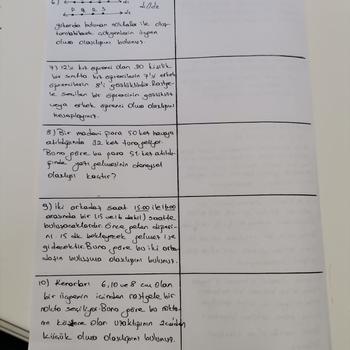 6)
P R S
şekilde
yukarıda bulunan noktalar ile oluş-
turulabilecek üçgenlerin
olma olasılığını bulunuz.
7) 12'si kız öğrenci olan 30 kişilik
bir sınıfta kız öğrencilerin 7'si erkek
öğrencilerin 8'i gözlüklüdür. Rastge-
le seçilen bir öğrencinin gözlüklü
veya erkek öğrenci olma olasılığını
hesaplayınız.
8) Bir madeni para 50 kez havaya
atıldığında 32 kez tura geliyor.
Buna göre bu para 51. kez atıldı-
ğında yazı gelmesinin deneysel
olasılığı kaçtır?
9) İki arkadaş saat 15.00 ile 16.00
arasında bir (15 ve 16 dahil) saatte
buluşacaklardır. Önce gelen diğeri-
ni 15 dk bekleyecek gelmez ise
gidecektir. Buna göre bu iki arka-
daşın buluşma olasılığını bulunuz.
10) Kenarları 6, 10 ve 8 cm olan
bir üçgenin içinden rastgele bir
nokta seçiliyor. Buna göre bu nokta-
nın köşelere olan uzaklığının 2cm'den
küçük olma olasılığını bulunuz.